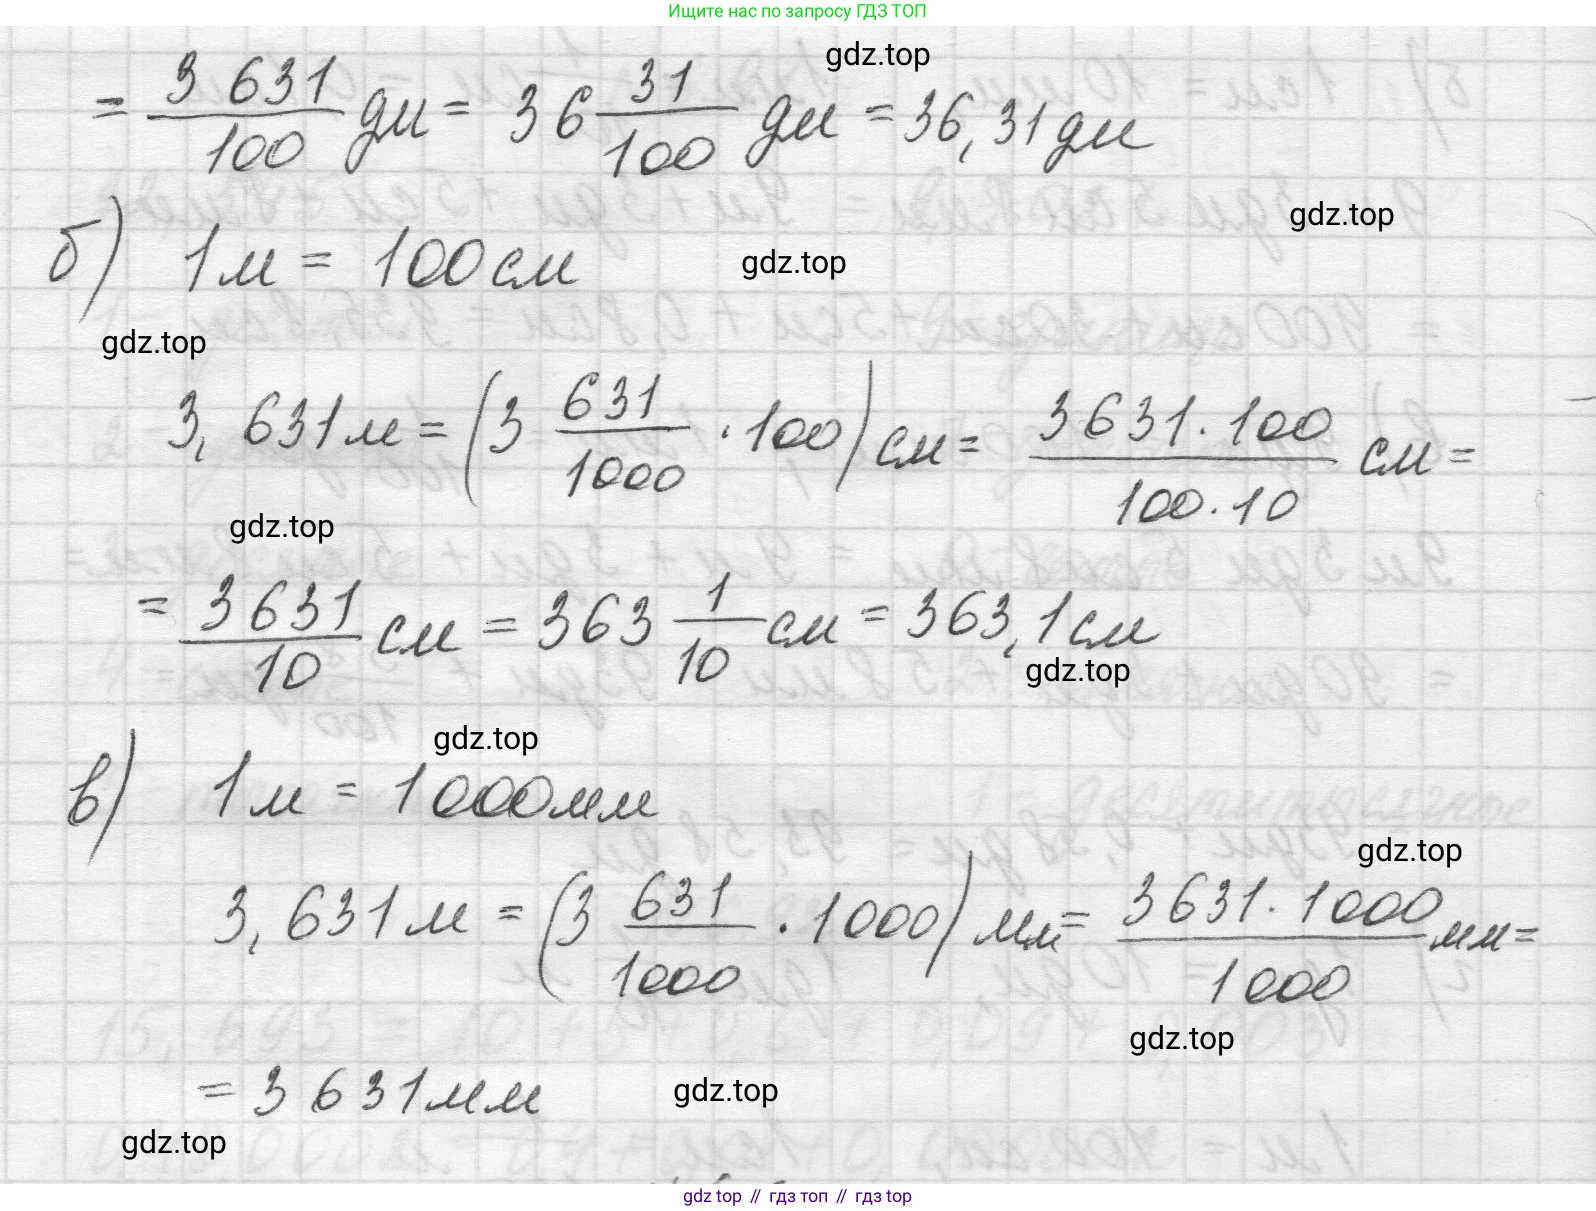 Ищите нас по запросу ГДЗ ТОП
gdz.top
= 3 631/100 дм = 36 31/100 дм = 36,31 дм
gdz.top
б) 1 м = 100 см
gdz.top
gdz.top
3,631 м = (3 631/1000 · 100) см = 3 631 · 100/100 · 10 см =
gdz.top
= 3 631/10 см = 363 1/10 см = 363,1 см
gdz.top
gdz.top
в) 1 м = 1 000 мм
gdz.top
3,631 м = (3 631/1000 · 1000) мм = 3 631 · 1000/1 000 мм =
gdz.top
= 3 631 мм
gdz.top
gdz.top
gdz top // гдз топ // gdz top